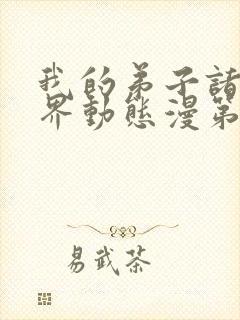 我的弟子諸
界動態漫第
易武茶